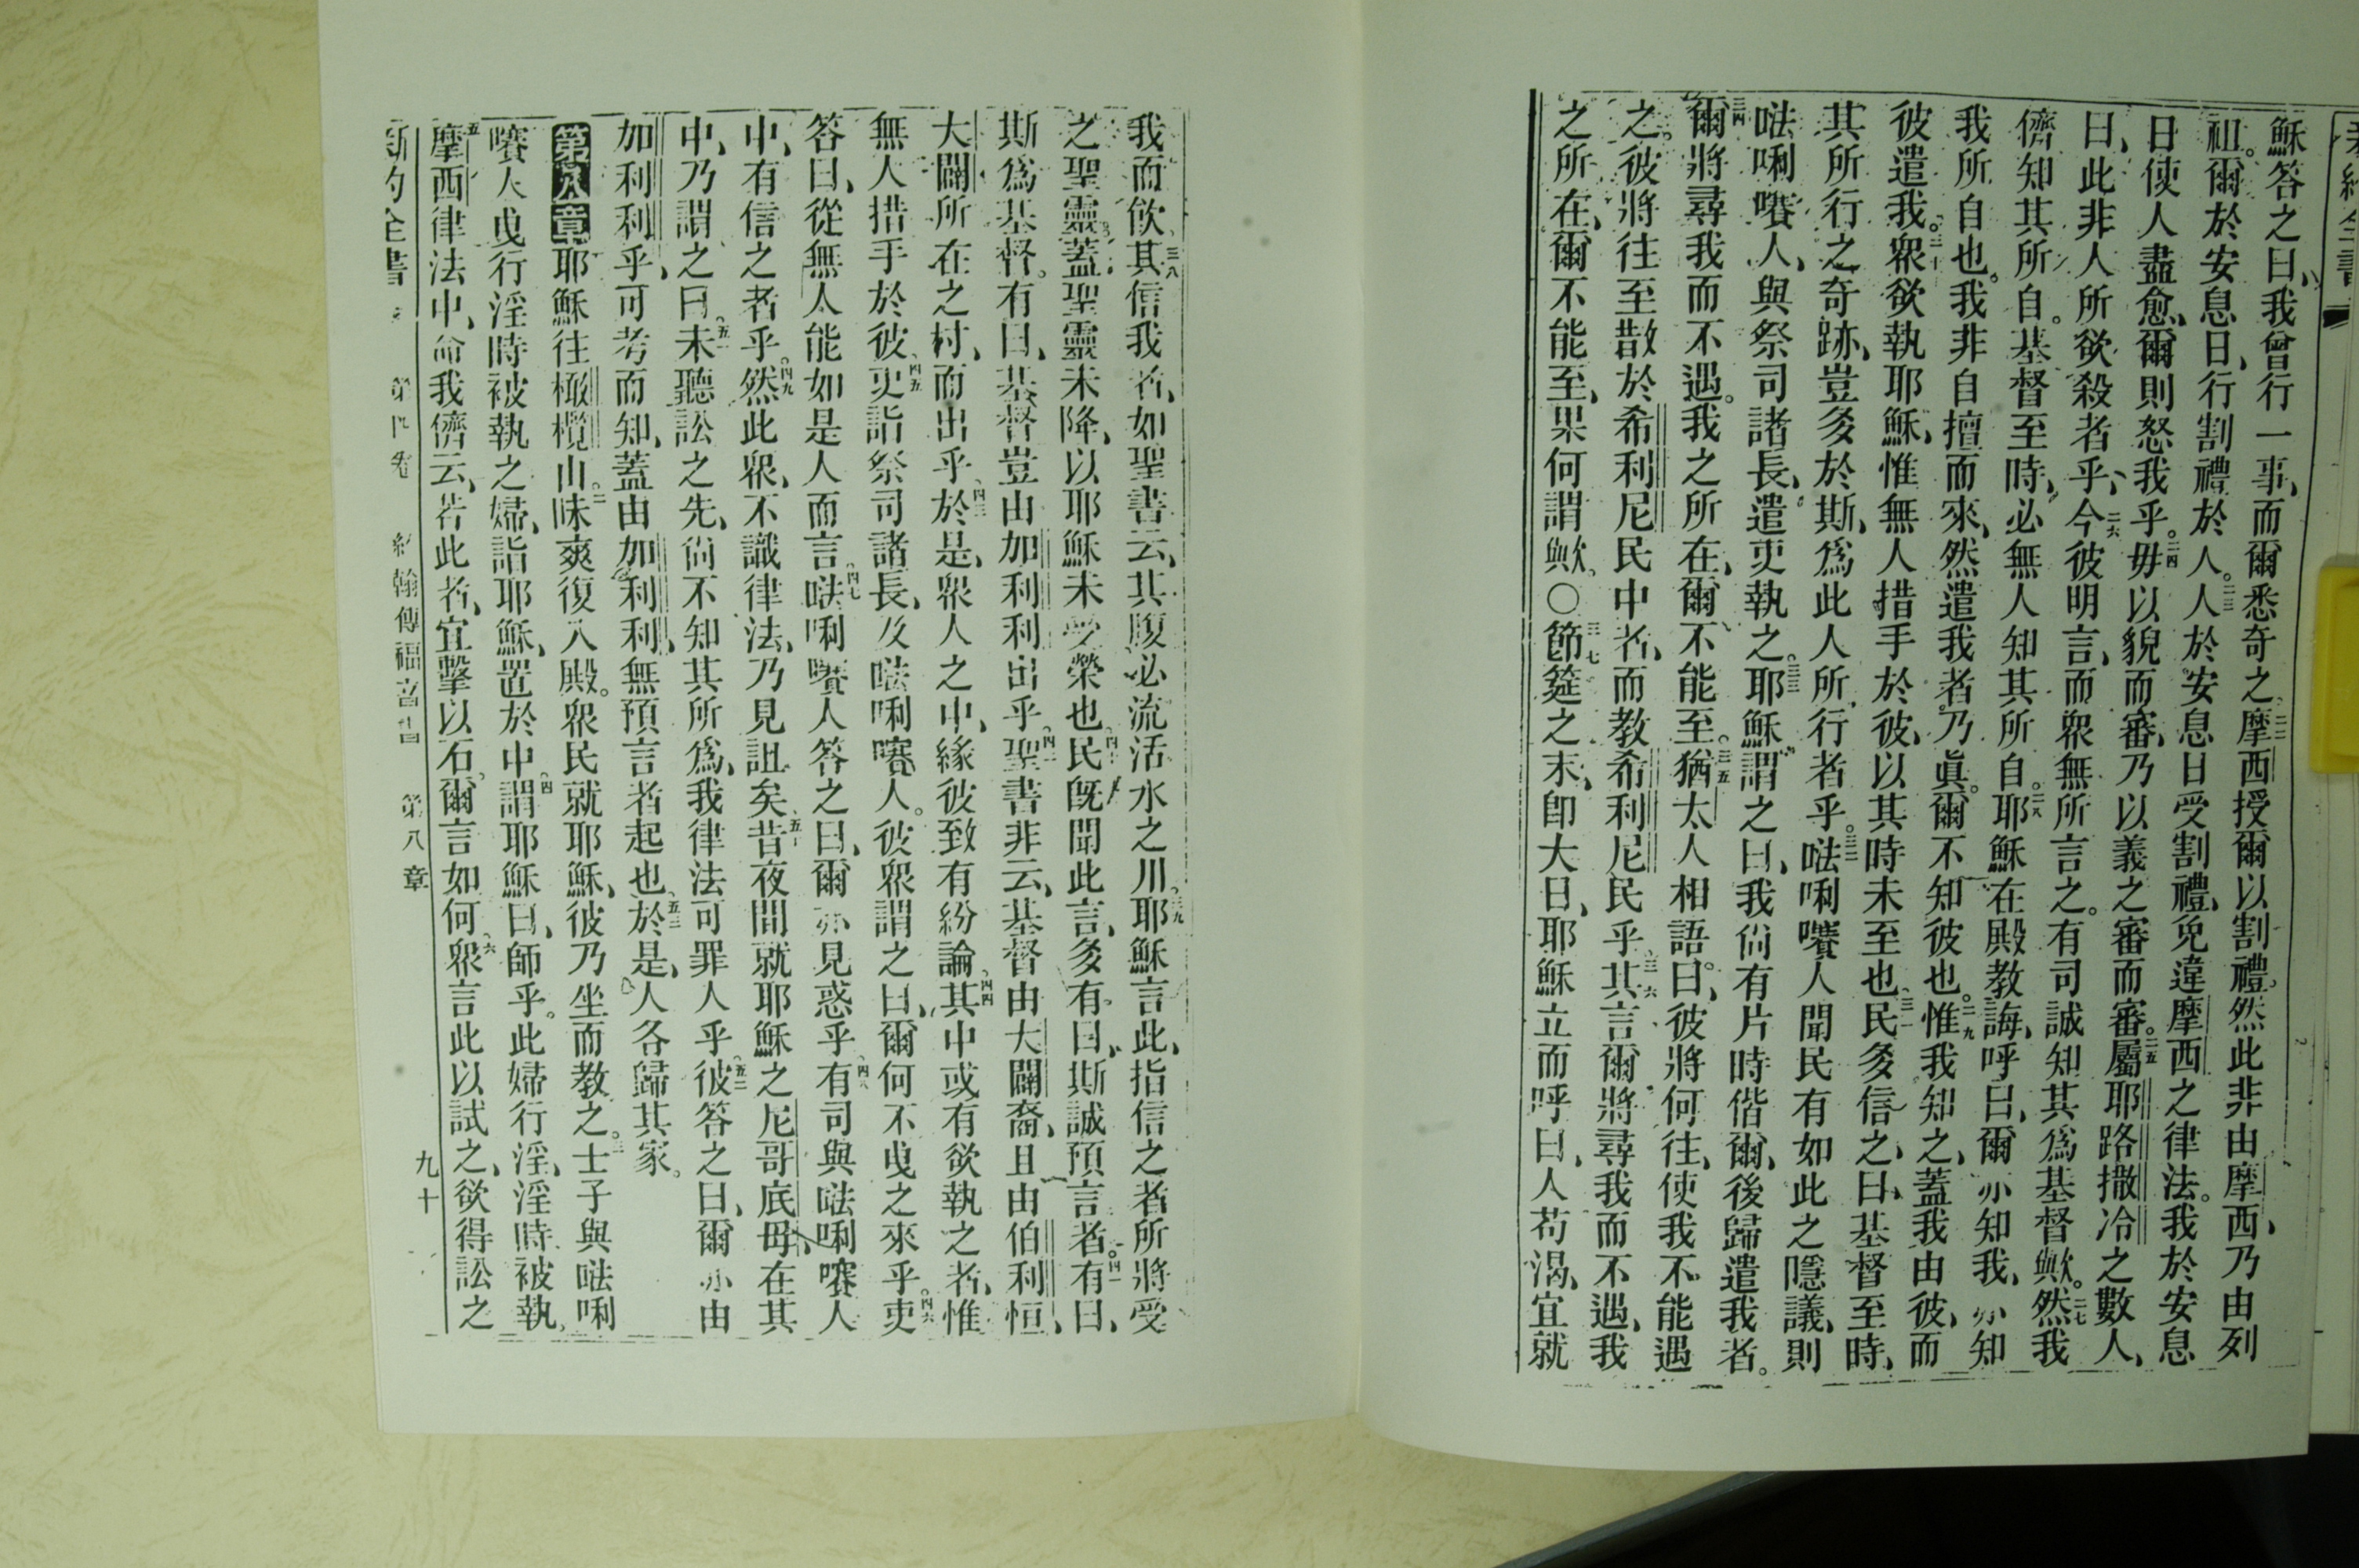 穌答之曰、我曾行一事、而爾悉奇之。二二摩西授爾以割禮。然此非由摩西、乃由列
祖。爾於安息日、行割禮於人。二三人於安息日受割禮、免違摩西之律法。我於安息
日使人盡愈、爾則怒我乎。二四毋以貌而審、乃以義之審而審。二五屬耶路撒冷之數人、
曰、此非人所欲殺者乎、二六今彼明言、而眾無所言之。有司誠知其爲基督歟。二七然我
儕知其所自。基督至時、必無人知其所自。二八耶穌在殿教誨、呼曰、爾亦知我、亦知
我所自也。我非自擅而來、然遣我者、乃眞。爾不知彼也。二九惟我知之、蓋我由彼、而
彼遣我。三十眾欲執耶穌、惟無人措手於彼、以其時未至也。三一民多信之、曰、基督至時、
其所行之奇跡、豈多於斯、爲此人所行者乎。三二㗲唎㘔人聞民有如此之隱議、則
㗲唎㘔人、與祭司諸長、遣吏執之。三三耶穌謂之曰、我尙有片時偕爾、後歸遣我者。
三四爾將尋我而不遇。我之所在、爾不能至。三五猶太人相語曰、彼將何往、使我不能遇
之。彼將往至散於希利尼民中者、而教希利尼民乎。三六其言爾將尋我而不遇、我
之所在、爾不能至、果何謂歟。〇三七節筵之末、卽大日、耶穌立而呼曰、人苟渴、宜就
我而飲。三八其信我者、如聖書云、其腹必流活水之川。三九耶穌言此、指信之者所將受
之聖靈。蓋聖靈未降、以耶穌未受榮也。四十民旣聞此言、多有曰、斯誠預言者。四一有曰、
斯爲基督。有曰、基督豈由加利利出乎。四二聖書非云、基督由大闢裔、且由伯利恒、
大闢所在之村、而出乎。四三於是、眾人之中、緣彼致有紛論。四四其中或有欲執之者、惟
無人措手於彼。四五吏詣祭司諸長、及㗲唎㘔人。彼眾謂之曰、爾何不曳之來乎。四六吏
答曰、從無人能如是人而言。四七㗲唎㘔人答之曰、爾亦見惑乎。四八有司與㗲唎㘔人
中、有信之者乎。四九然此眾、不識律法、乃見詛矣。五十昔夜間就耶穌之尼哥底母、在其
中、乃謂之曰。五一未聽訟之先、尙不知其所爲、我律法可罪人乎。五二彼答之曰、爾亦由
加利利乎、可考而知、蓋由加利利、無預言者起也。五三於是、人各歸其家。
第八章耶穌往橄欖山。二昧爽復入殿。眾民就耶穌、彼乃坐而教之。三士子與㗲唎
㘔人曳行淫時被執之婦、詣耶穌、置於中。四謂耶穌曰、師乎。此婦行淫、淫時被執。
五摩西律法中、命我儕云、若此者、宜擊以石。爾言如何。六眾言此以試之、欲得訟之
新約全書 第四卷 約翰傳福音書 第八章 九十